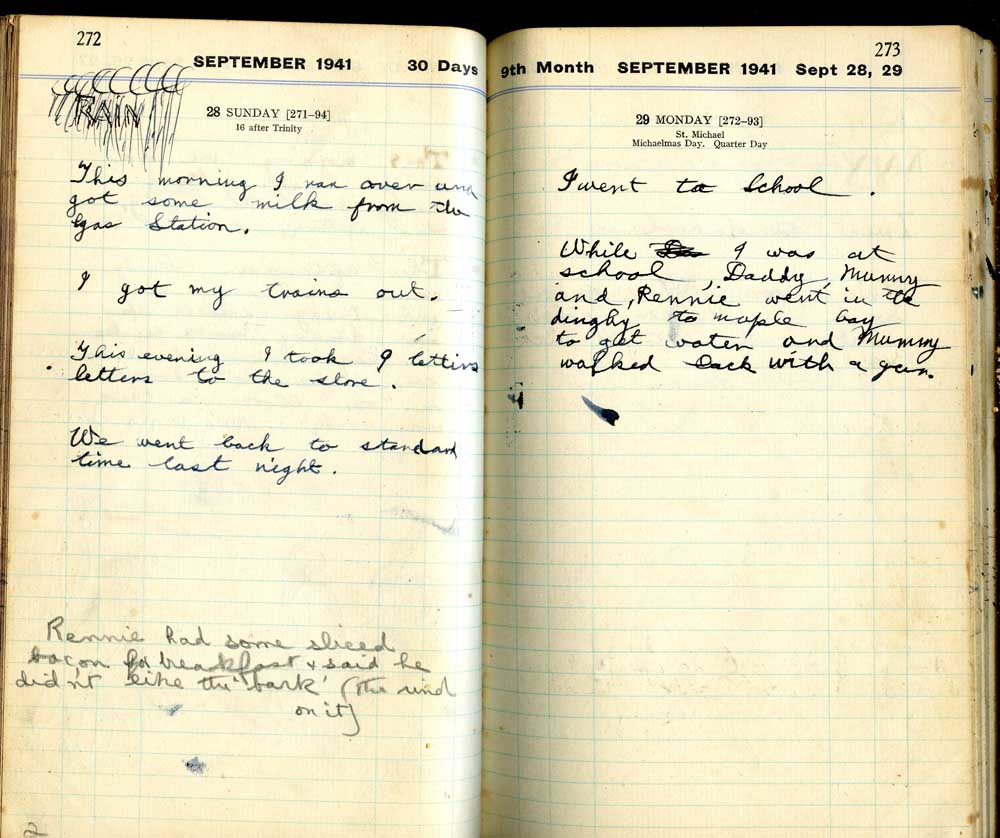 272
SEPTEMBER 1941 30 Days
RAIN
28 SUNDAY [271-94]
16 after Trinity
This morning I ran over and
got some milk from the
gas Station.
I got my trains out.
This evening I took 9 letters
letters to the store.
We went back to standard
time last night.
Rennie had some sliced
bacon for breakfast & said he
did n't like the 'bark' (the rind
on it)
2
273
9th Month SEPTEMBER 1941 Sept 28, 29
29 MONDAY [272-93]
St. Michael
Michaelmas Day. Quarter Day
I went to School .
While I was at
school , Daddy, Mummy
and , Rennie went in the
dinghy to maple bay
to get water and Mummy
walked back with a gun.